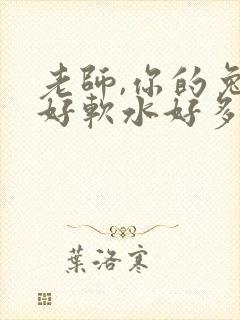 老師,你的兔
好軟水好多
葉洛寒